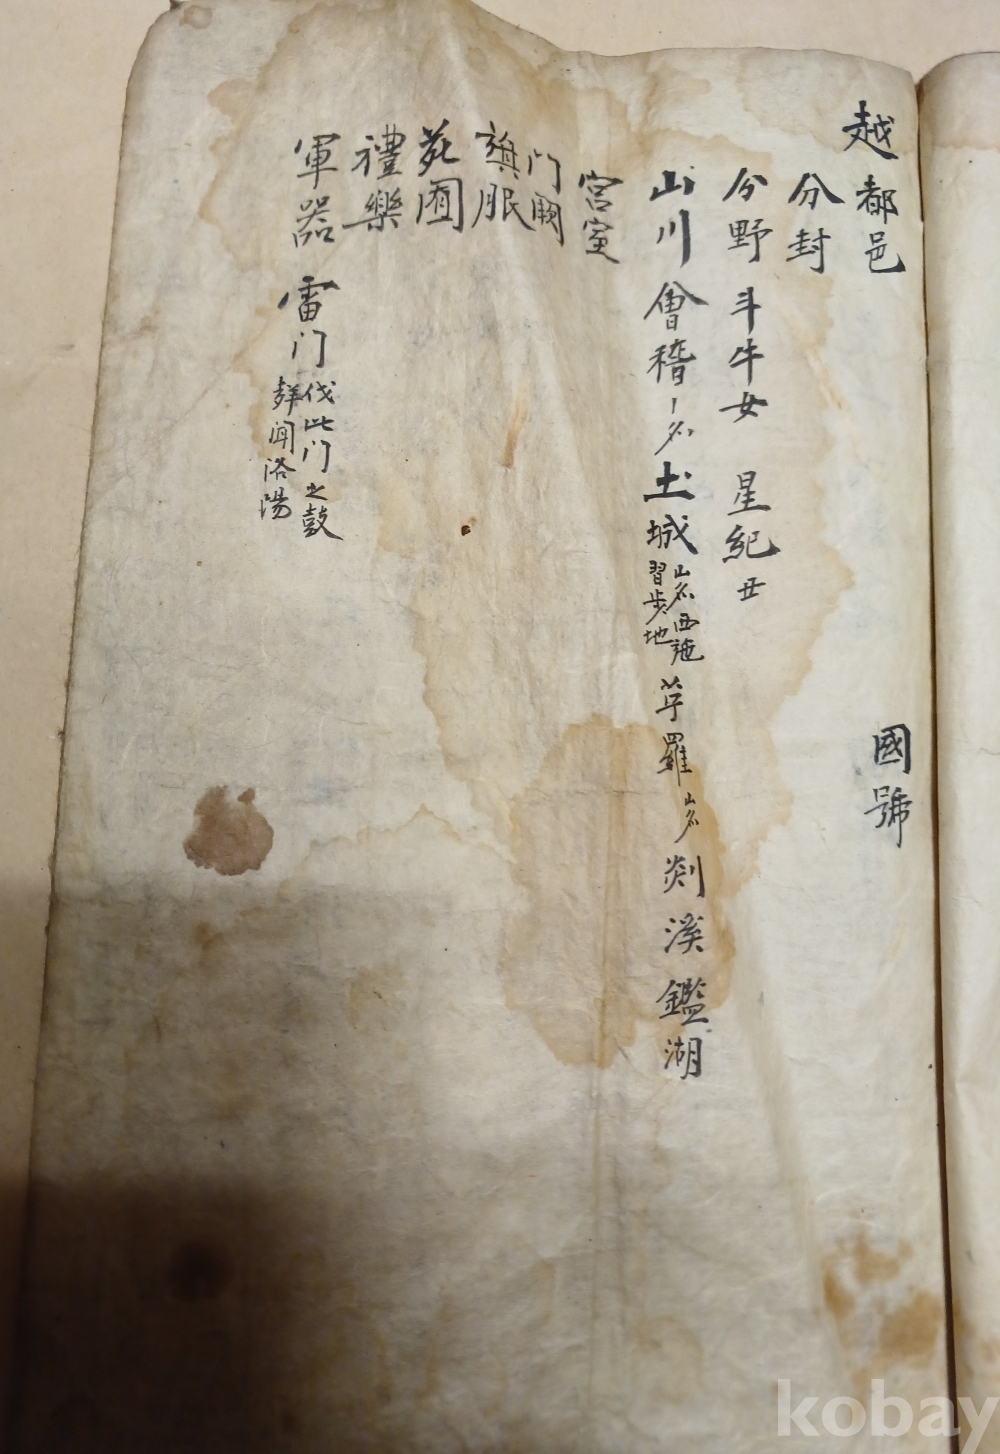 越都邑 國號
分封
分野 斗牛女 星紀 丑
山川 會稽 山名 土城 山名西施習步地 苧羅 山名 剡溪 鑑湖
宮室
門闕
旗服
苑囿
禮樂
軍器 雷门 伐此门之鼓 聞洛陽
kobay